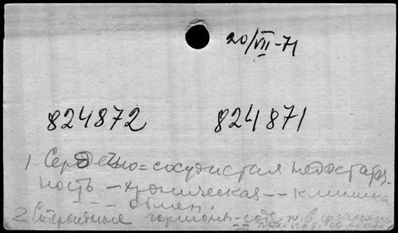 20/VII-71
824872 824871
1. Сердечно-сосудистая недостаточ-
ность -- хроническая -- клиника
-- -- обмен.
2. Стероидные гормоны -- сод. в